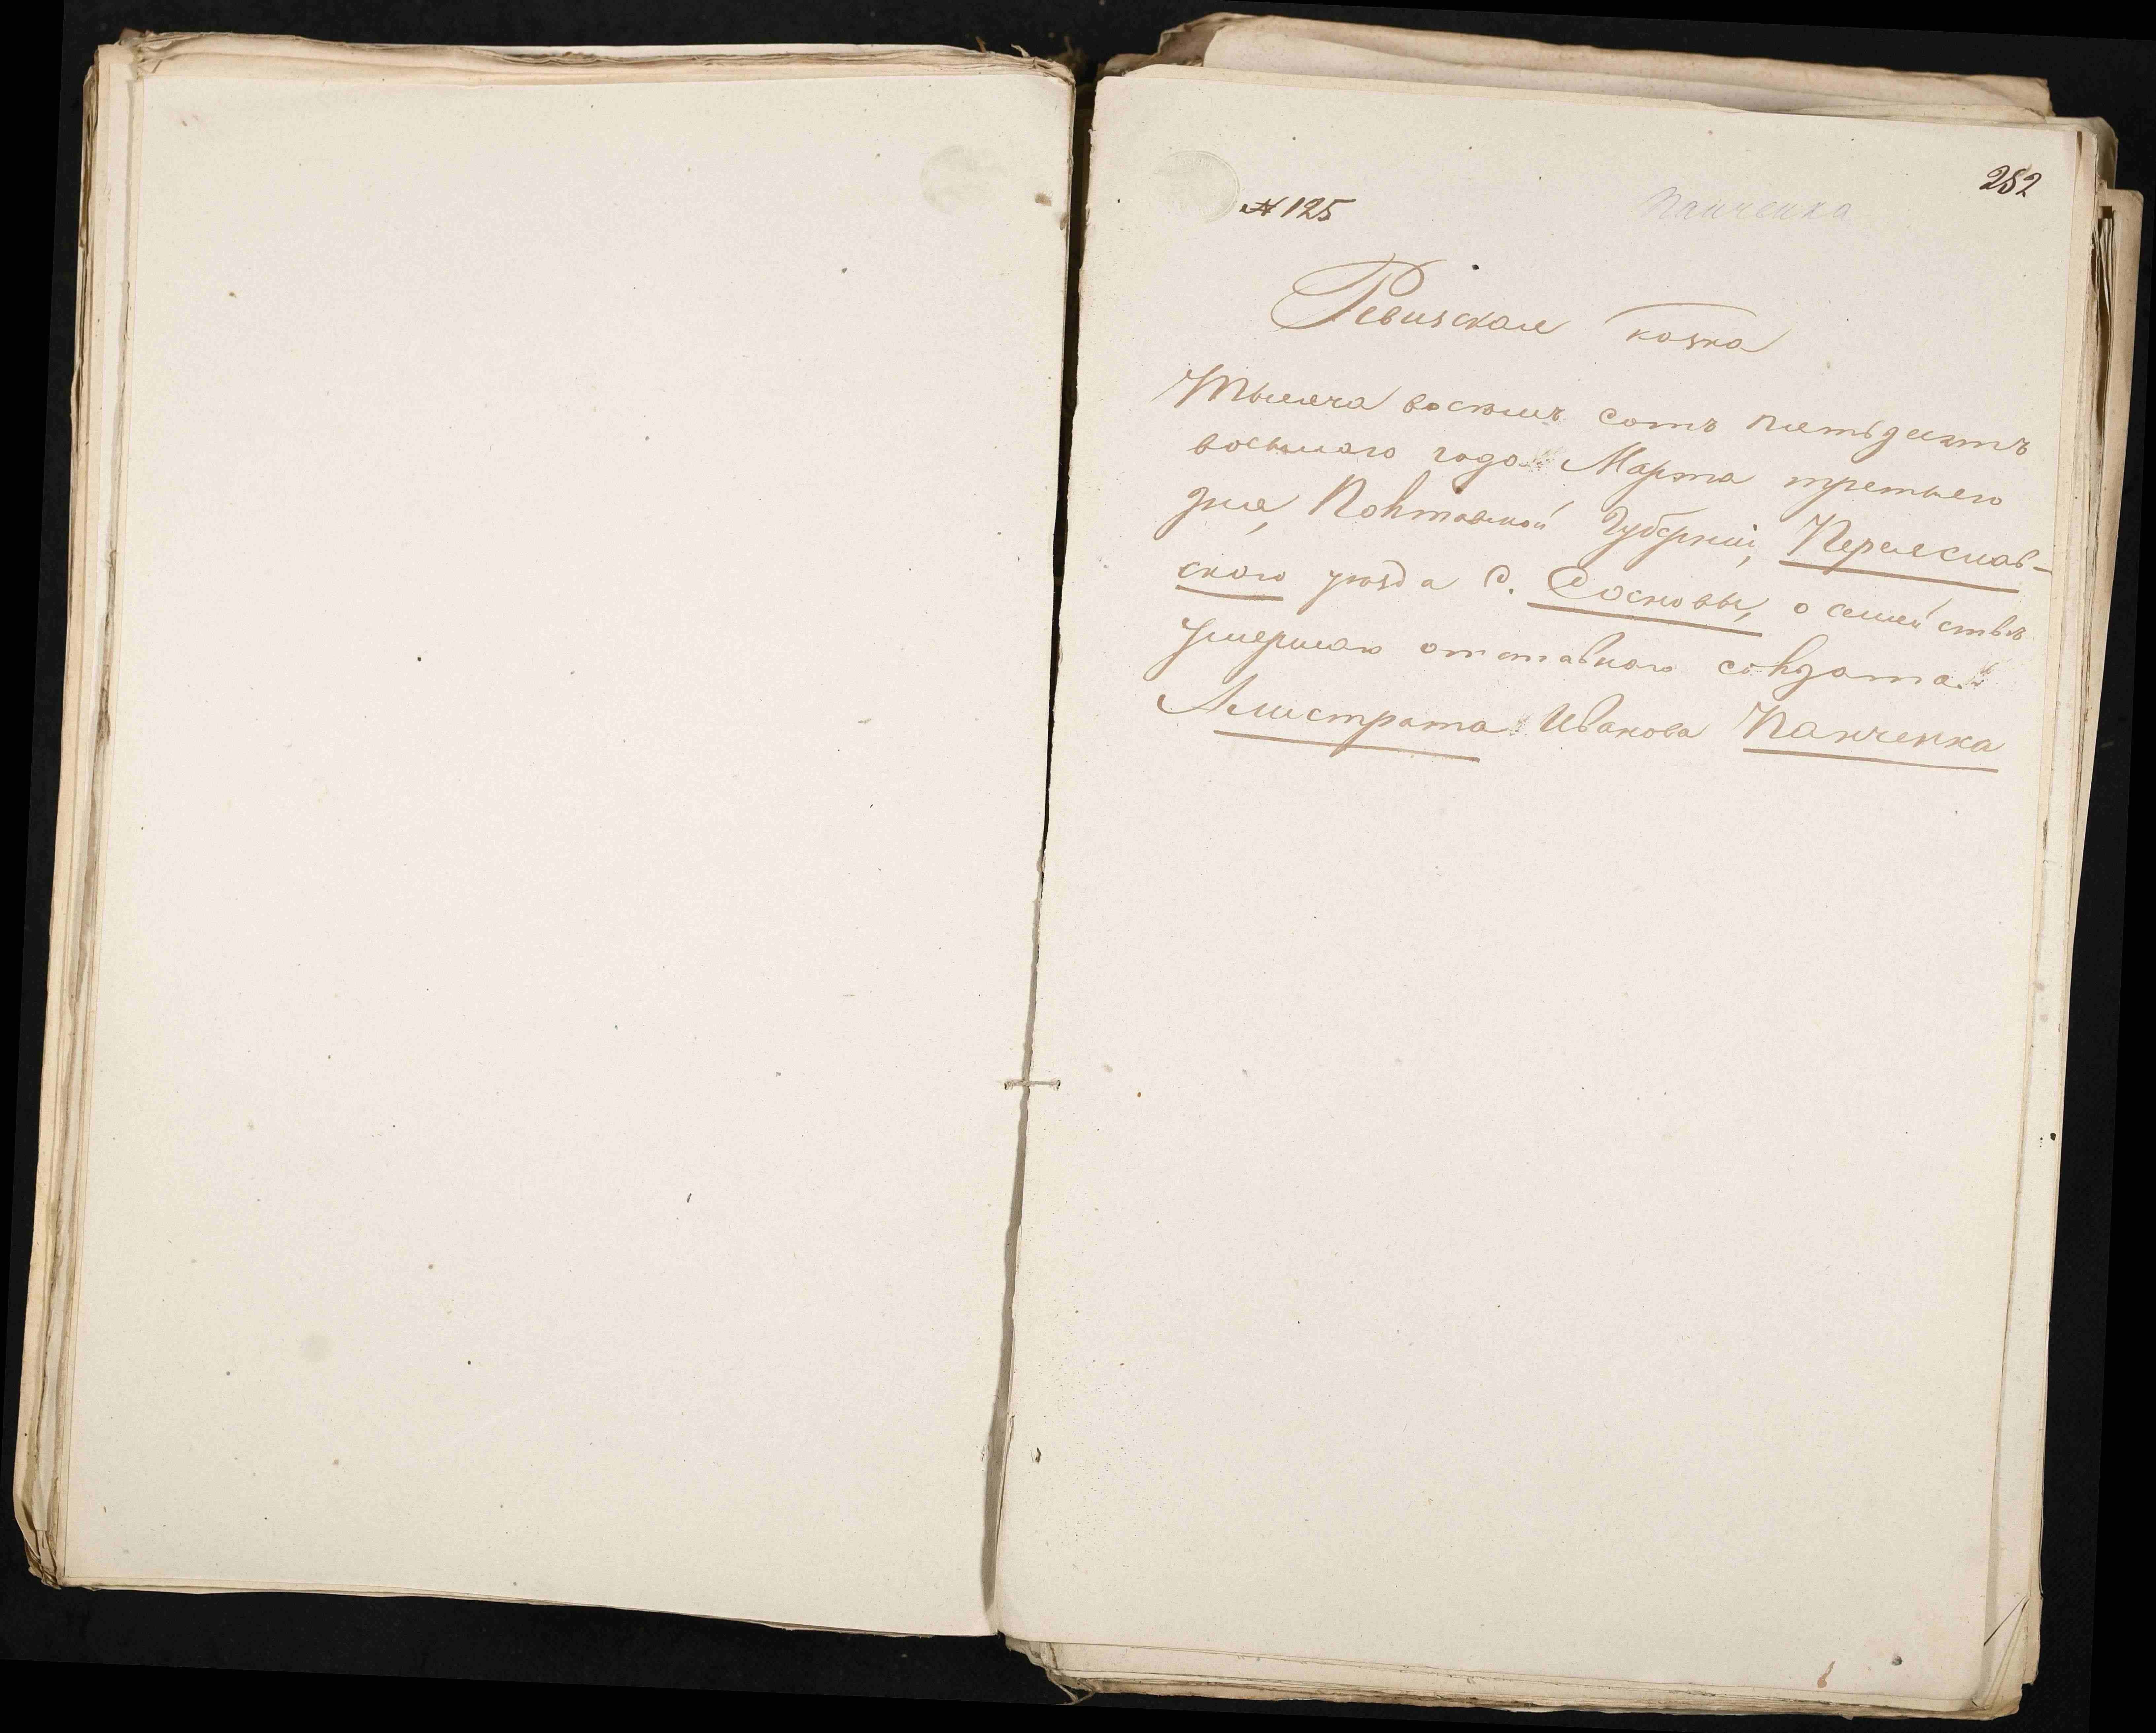 252
№ 125
Панченка
Ревизская сказка
Тысяча восемь сотъ пятьдесятъ
восьмаго года Марта третьего
дня, Полтавской Губерніи, Переяслав-
скаго уезда С. Сосновы, о семействе
умершаго отставнаго солдата
Алистрата Иванова Панченка